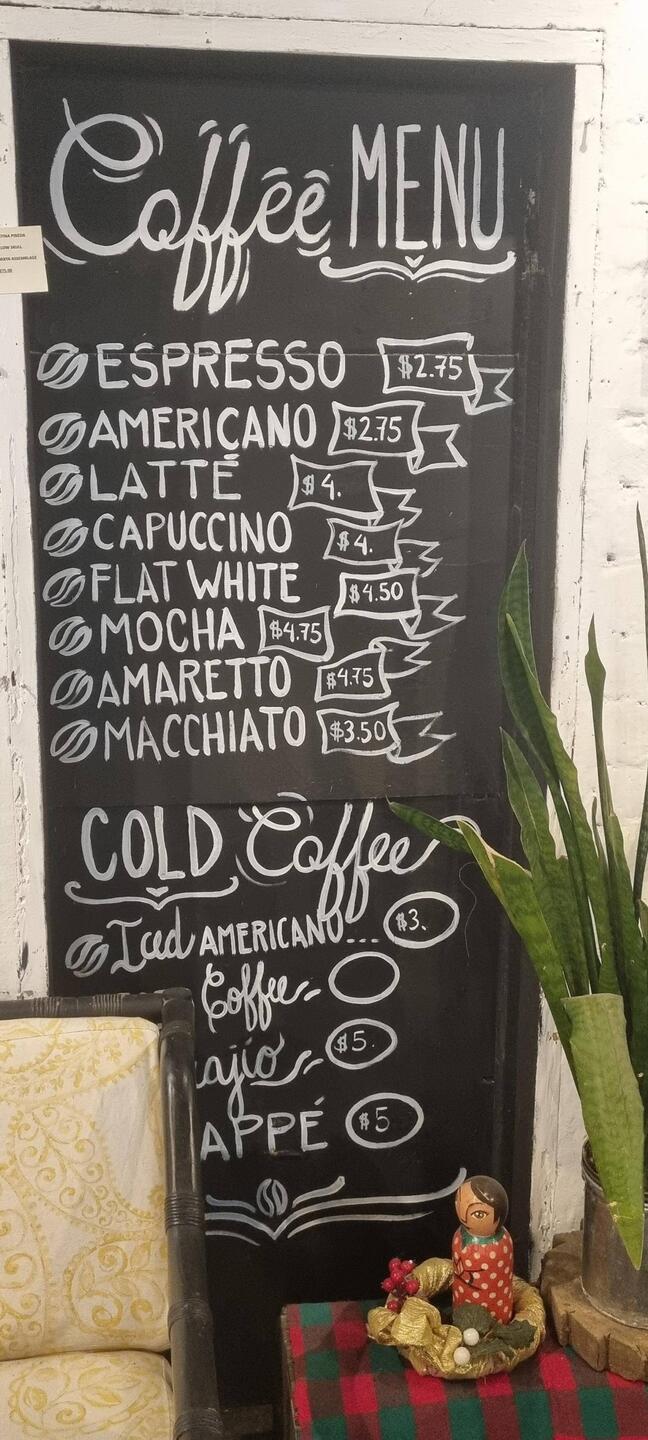 Coffee MENU
ESPRESSO $2.75
AMERICANO $2.75
LATTÉ $4.
CAPUCCINO $4.
FLAT WHITE $4.50
MOCHA $4.75
AMARETTO $4.75
MACCHIATO $3.50
COLD Coffee
Iced AMERICANO... $3.
Coffee
$5.
APPÉ $5